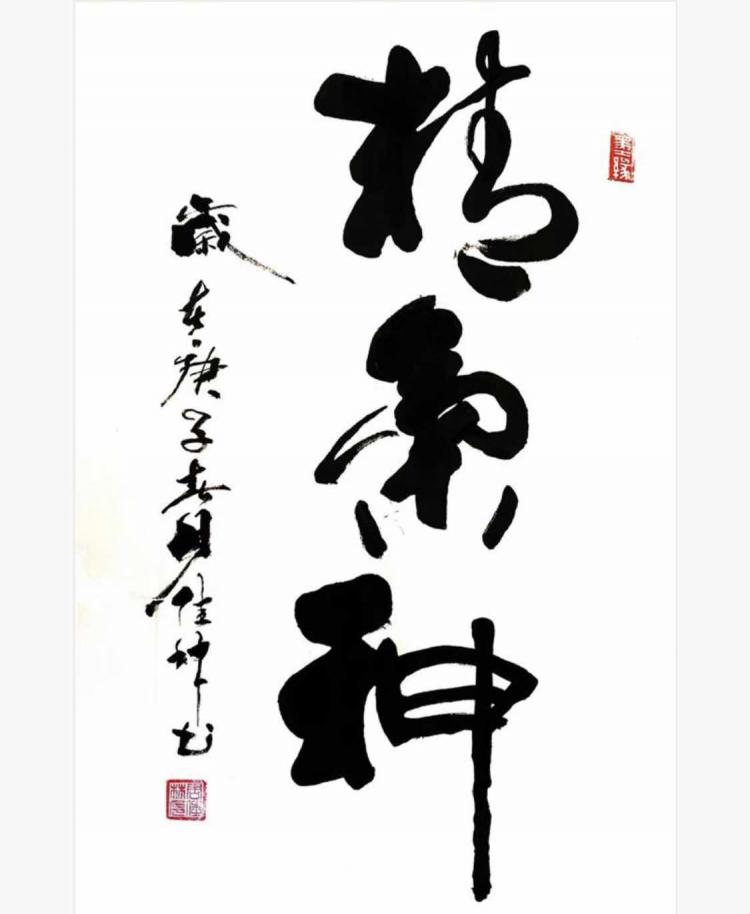 精氣神
歲在庚子春月佳书